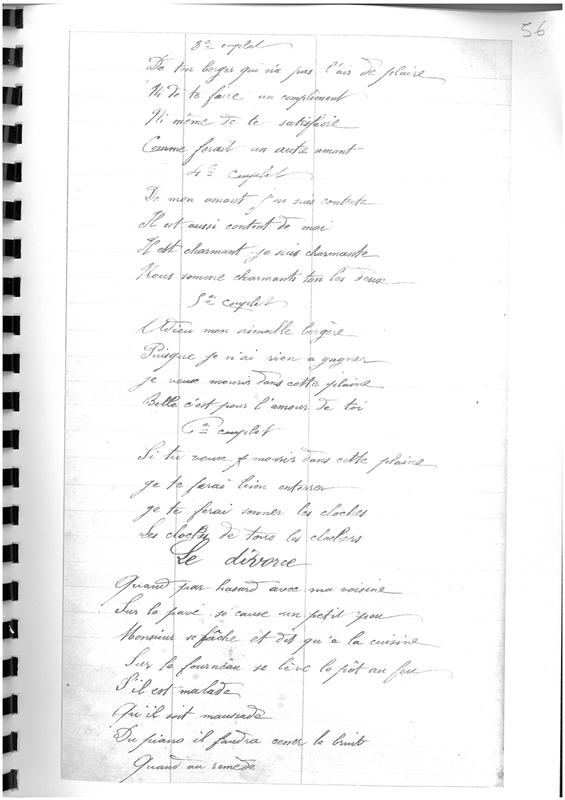 56
3e couplet
De ton berger qui n'a pas l'air de plaire
Ni de te faire un compliment
Ni même de te satisfaire
Comme ferait un autre amant
4e couplet
De mon amant j'en suis contente
Il est aussi content de moi
Il est charmant je suis charmante
Nous somme charmants tous les deux
5e couplet
Adieu mon aimable bergère
Puisque je n'ai rien a gagner
je veux mourir dans cette plaine
Belle c'est pour l'amour de toi
6e couplet
Si tu veux mourir dans cette plaine
je te ferai bien enterrer
je te ferai sonner les cloches
Les cloches de tous les clochers
Le divorce
Quand par hasard avec ma voisine
Sur le pavé je cause un petit peu
Monsieur se fâche et dit qu'a la cuisine
Sur le fourneau se lève le pôt au feu
S'il est malade
Qu'il soit maussade
Du piano il faudra cesser le bruit
Quand au remède